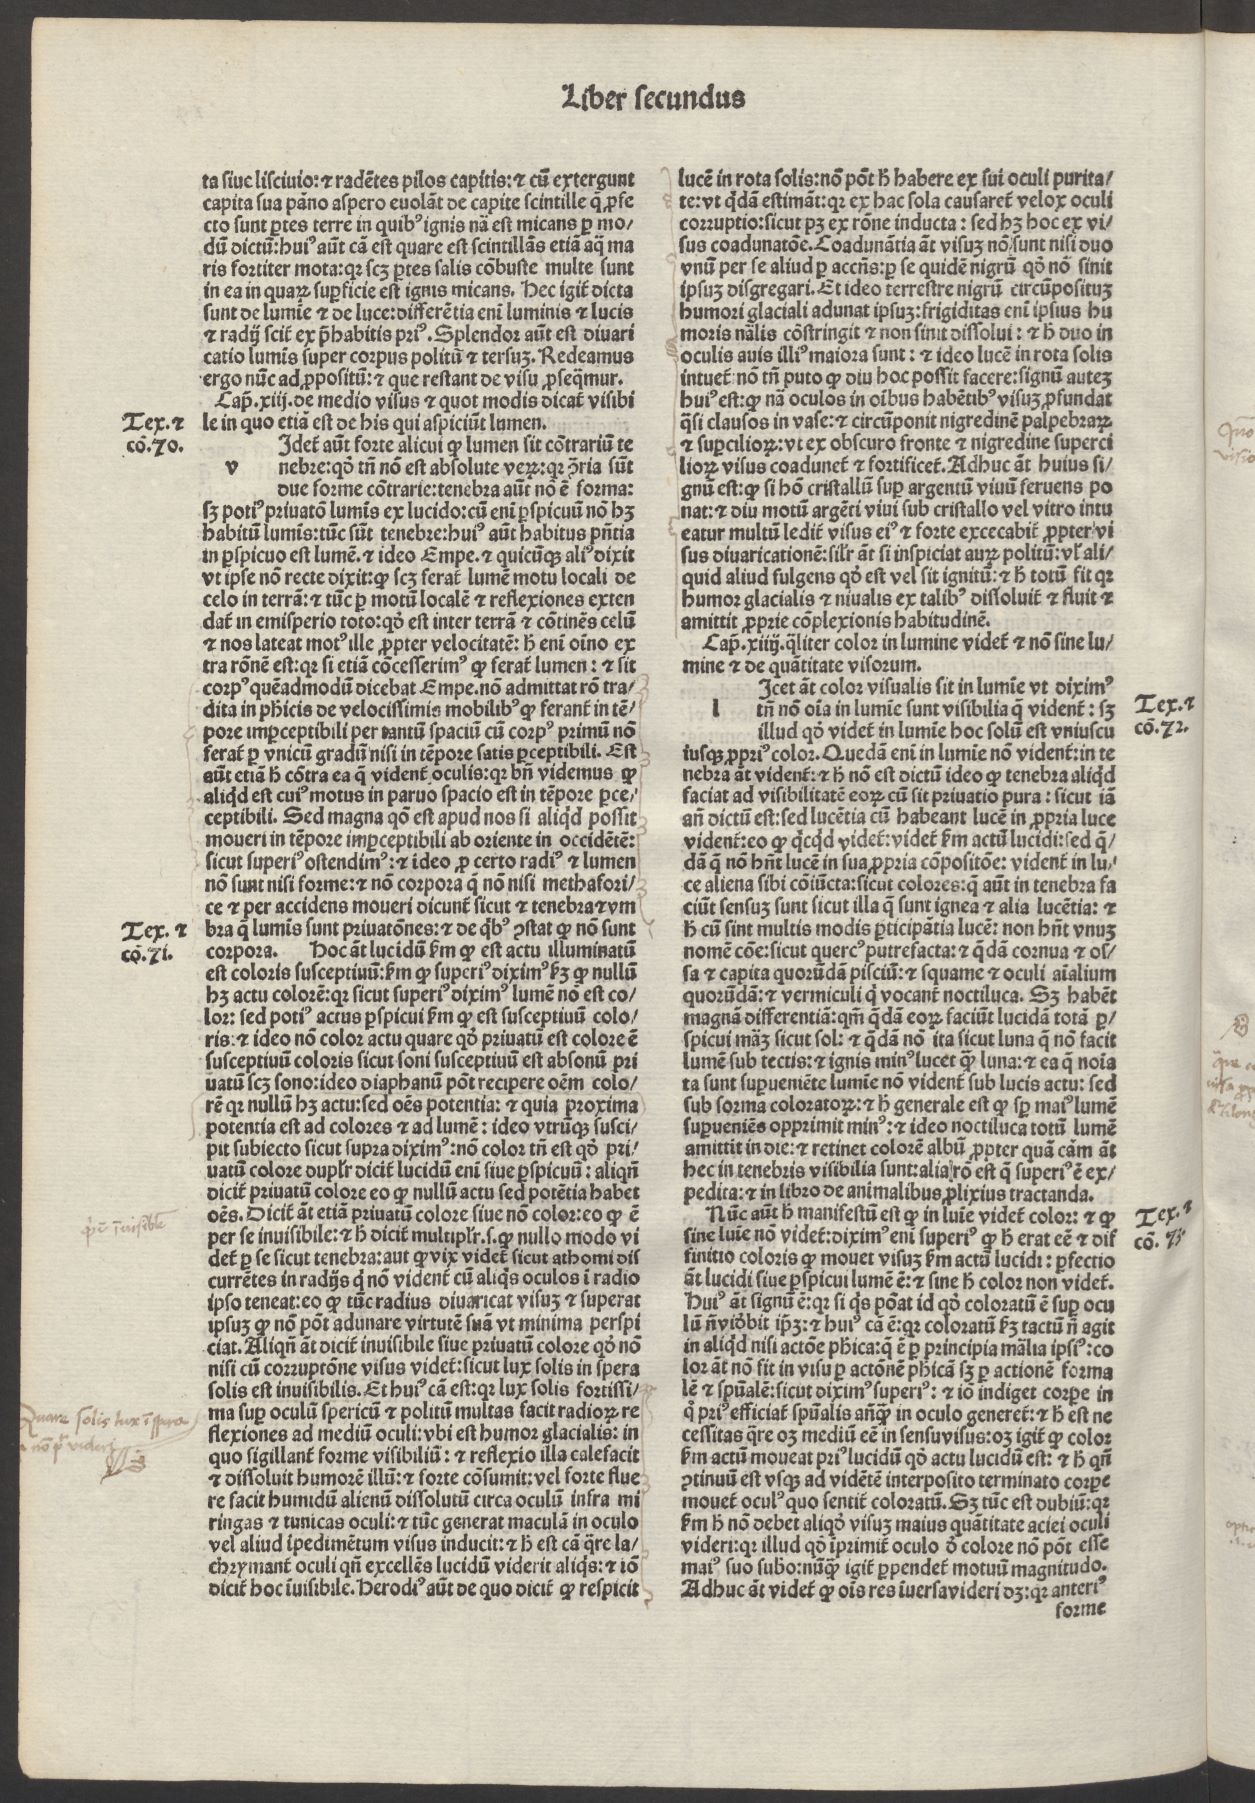 Liber secundus
ta siue lisciuio: ⁊ radẽtes pilos capitis: ⁊ cũ extergunt
capita sua pãno aspero euolãt de capite scintille q̃ ꝑfe
cto sunt ꝑtes terre in quibꝰ ignis nã est micans ꝑ mo/
dũ dictũ: huiꝰ aũt cã est quare est scintillãs etiã aq̃ ma
ris fortiter mota: qꝛ scꝫ ꝑtes salis cõbuste multe sunt
in ea in quaꝝ suꝑficie est ignis micans. Hec igit̃ dicta
sunt de lumĩe ⁊ de luce: differẽtia eni luminis ⁊ lucis
⁊ radij scit̃ ex p̃habitis priꝰ. Splendor aũt est diuari
catio lumĩs super corpus politũ ⁊ tersuꝫ. Redeamus
ergo nũc ad ꝓpositũ: ⁊ que restant de visu ꝓseq̃mur.
Cap̃. xiij. de medio visus ⁊ quot modis dicat̃ visibi
le in quo etiã est de his qui aspiciũt lumen.
Tex. ⁊
cõ. 70.
v
Idet̃ aũt forte alicui ꝙ lumen sit cõtrariũ te
nebre: qd̃ tñ nõ est absolute veꝝ: qꝛ ꝯ̃ria sũt
due forme cõtrarie: tenebra aũt nõ ẽ forma:
sꝫ potiꝰ priuatõ lumĩs ex lucido: cũ eni ꝑspicuũ nõ hꝫ
habitũ lumĩs: tũc sũt tenebre: huiꝰ aũt habitus pñtia
in ꝑspicuo est lumẽ. ⁊ ideo Empe. ⁊ quicũqꝫ aliꝰ dixit
vt ipse nõ recte dixit: ꝙ scꝫ ferat̃ lumẽ motu locali de
celo in terrã: ⁊ tũc ꝑ motũ localẽ ⁊ reflexiones exten
dat̃ in emisperio toto: qd̃ est inter terrã ⁊ cõtinẽs celũ
⁊ nos lateat motꝰ ille ꝓpter velocitatẽ: h̃ eni oĩno ex
tra rõnẽ est: qꝛ si etiã cõcesserimꝰ ꝙ ferat̃ lumen: ⁊ sit
corpꝰ quẽadmodũ dicebat Empe. nõ admittat rõ tra/
dita in ph̃icis de velocissimis mobilibꝰ ꝙ ferant̃ in tẽ/
pore imꝑceptibili per tantũ spaciũ cũ corpꝰ primũ nõ
ferat̃ ꝑ vnicũ gradũ nisi in tẽpore satis ꝑceptibili. Est
aũt etiã h̃ cõtra ea q̃ vident̃ oculis: qꝛ bñ videmus ꝙ
aliqd̃ est cuiꝰ motus in paruo spacio est in tẽpore ꝑce/
ceptibili. Sed magna qõ est apud nos si aliqd̃ possit
moueri in tẽpore imꝑceptibili ab oriente in occidẽtẽ:
sicut superiꝰ ostendimꝰ: ⁊ ideo ꝓ certo radiꝰ ⁊ lumen
nõ sunt nisi forme: ⁊ nõ corpora q̃ nõ nisi methafori/
ce ⁊ per accidens moueri dicunt̃ sicut ⁊ tenebra ⁊ vm
bra q̃ lumĩs sunt priuatõnes: ⁊ de qĩbꝰ ꝯstat ꝙ nõ sunt
Tex. ⁊
cõ. 71.
corpora. Hoc ãt lucidũ km̃ ꝙ est actu illuminatũ
est coloris susceptiuũ: km̃ ꝙ superiꝰ diximꝰ kꝫ ꝙ nullũ
hꝫ actu colorẽ: qꝛ sicut superiꝰ diximꝰ lumẽ nõ est co/
lor: sed potiꝰ actus ꝑspicui km̃ ꝙ est susceptiuũ colo/
ris: ⁊ ideo nõ color actu quare qd̃ priuatũ est colore ẽ
susceptiuũ coloris sicut soni susceptiuũ est absonũ pri
uatũ scꝫ sono: ideo diaphanũ põt recipere oẽm colo/
rẽ qꝛ nullũ hꝫ actu: sed oẽs potentia: ⁊ quia proxima
potentia est ad colores ⁊ ad lumẽ: ideo vtrũqꝫ susci/
pit subiecto sicut supra diximꝰ: nõ color tñ est qd̃ pri/
uatũ colore duplr̃ dicit̃ lucidũ eni siue ꝑspicuũ: aliqñ
dicit̃ priuatũ colore eo ꝙ nullũ actu sed potẽtia habet
oẽs. Dicit̃ ãt etiã priuatũ colore siue nõ color: eo ꝙ ẽ
per se inuisibile: ⁊ h̃ dicit̃ multiplr̃. s. ꝙ nullo modo vi
det̃ ꝑ se sicut tenebra: aut ꝙ vix videt̃ sicut athomi dis
currẽtes in radijs q̃ nõ vident̃ cũ aliq̃s oculos ĩ radio
ipso teneat: eo ꝙ tũc radius diuaricat visuꝫ ⁊ superat
ipsuꝫ ꝙ nõ põt adunare virtutẽ suã vt minima perspi
ciat. Aliqñ ãt dicit̃ inuisibile siue priuatũ colore qd̃ nõ
nisi cũ corruptõne visus videt̃: sicut lux solis in spera
solis est inuisibilis. Et huiꝰ cã est: qꝛ lux solis fortissi/
ma suꝑ oculũ spericũ ⁊ politũ multas facit radioꝝ re
flexiones ad mediũ oculi: vbi est humor glacialis: in
quo sigillant̃ forme visibiliũ: ⁊ reflexio illa calefacit
⁊ dissoluit humorẽ illũ: ⁊ forte cõsumit: vel forte flue
re facit humidũ alienũ dissolutũ circa oculũ infra mi
ringas ⁊ tunicas oculi: ⁊ tũc generat maculã in oculo
vel aliud ĩpedimẽtum visus inducit: ⁊ h̃ est cã q̃re la/
chrymant̃ oculi qñ excellẽs lucidũ viderit aliq̃s: ⁊ iõ
dicit̃ hoc ĩuisibile. Herodiꝰ aũt de quo dicit̃ ꝙ respicit
lucẽ in rota solis: nõ põt h̃ habere ex sui oculi purita/
te: vt q̃dã estimãt: qꝛ ex hac sola causaret̃ velox oculi
corruptio: sicut pꝫ ex rõne inducta: sed hꝫ hoc ex vi/
sus coadunatõe. Coadunãtia ãt visuꝫ nõ sunt nisi duo
vnũ per se aliud ꝑ accñs: ꝑ se quidẽ nigrũ qd̃ nõ sinit
ipsuꝫ disgregari. Et ideo terrestre nigrũ circũpositum
humori glaciali adunat ipsuꝫ: frigiditas eni ipsius hu
moris nãlis cõstringit ⁊ non sinit dissolui: ⁊ h̃ duo in
oculis auis illiꝰ maiora sunt: ⁊ ideo lucẽ in rota solis
intuet̃ nõ tñ puto ꝙ diu hoc possit facere: signũ autẽ
huiꝰ est: ꝙ nã oculos in oĩbus habẽtibꝰ visuꝫ ꝓfundat
q̃si clausos in vase: ⁊ circũponit nigredinẽ palpebraꝝ
⁊ suꝑcilioꝝ: vt ex obscuro fronte ⁊ nigredine superci
lioꝝ visus coadunet̃ ⁊ fortificet̃. Adhuc ãt huius si/
gnũ est: ꝙ si hõ cristallũ suꝑ argentũ viuũ feruens po
nat: ⁊ diu motũ argẽti viui sub cristallo vel vitro intu
eatur multũ ledit̃ visus eiꝰ ⁊ forte excecabit̃ ꝓpter vi
sus diuaricationẽ: silr̃ ãt si inspiciat auꝝ politũ: vl̃ ali/
quid aliud fulgens qd̃ est vel sit ignitũ: ⁊ h̃ totũ fit qꝛ
humor glacialis ⁊ niualis ex talibꝰ dissoluit̃ ⁊ fluit ⁊
amittit ꝓprie cõplexionis habitudinẽ.
Cap̃. xiiij. q̃liter color in lumine videt̃ ⁊ nõ sine lu/
mine ⁊ de quãtitate visorum.
l
Icet ãt color visualis sit in lumĩe vt diximꝰ
tñ nõ oĩa in lumĩe sunt visibilia q̃ vident̃: sꝫ
illud qd̃ videt̃ in lumĩe hoc solũ est vniuscu
Tex. ⁊
cõ. 72.
iusqꝫ ꝓpriꝰ color. Quedã eni in lumĩe nõ vident̃: in te
nebra ãt vident̃: ⁊ h̃ nõ est dictũ ideo ꝙ tenebra aliqd̃
faciat ad visibilitatẽ eoꝝ cũ sit priuatio pura: sicut iã
añ dictũ est: sed lucẽtia cũ habeant lucẽ in ꝓpria luce
vident̃: eo ꝙ q̃cqd̃ videt̃: videt̃ km̃ actũ lucidi: sed q̃/
dã q̃ nõ hñt lucẽ in sua ꝓpria cõpositõe: vident̃ in lu/
ce aliena sibi cõiũcta: sicut colores: q̃ aũt in tenebra fa
ciũt sensuꝫ sunt sicut illa q̃ sunt ignea ⁊ alia lucẽtia: ⁊
h̃ cũ sint multis modis ꝑticipãtia lucẽ: non hñt vnuꝫ
nomẽ cõe: sicut quercꝰ putrefacta: ⁊ q̃dã cornua ⁊ os/
sa ⁊ capita quorũdã pisciũ: ⁊ squame ⁊ oculi aĩalium
quorũdã: ⁊ vermiculi q̃ vocant̃ noctiluca. Sꝫ habẽt
magnã differentiã: qm̃ q̃dã eoꝝ faciũt lucidã totã ꝑ/
spicui mãꝫ sicut sol: ⁊ q̃dã nõ ita sicut luna q̃ nõ facit
lumẽ sub tectis: ⁊ ignis minꝰ lucet q̃ꝫ luna: ⁊ ea q̃ noĩa
ta sunt suꝑueniẽte lumĩe nõ vident̃ sub lucis actu: sed
sub forma coloratoꝝ: ⁊ h̃ generale est ꝙ sꝑ maiꝰ lumẽ
suꝑueniẽs opprimit minꝰ: ⁊ ideo noctiluca totũ lumẽ
amittit in die: ⁊ retinet colorẽ albũ ꝓpter quã cãm ãt
hec in tenebris visibilia sunt: alia rõ est q̃ superiꝰ ẽ ex/
pedita: ⁊ in libro de animalibus ꝓlixius tractanda.
Nũc aũt h̃ manifestũ est ꝙ in luĩe videt̃ color: ⁊ ꝙ
sine luĩe nõ videt̃: diximꝰ eni superiꝰ ꝙ h̃ erat eẽ ⁊ dif
Tex. ⁊
cõ. 73
finitio coloris ꝙ mouet visuꝫ km̃ actũ lucidi: ꝑfectio
ãt lucidi siue ꝑspicui lumẽ ẽ: ⁊ sine h̃ color non videt̃.
Huiꝰ ãt signũ ẽ: qꝛ si q̃s põat id qd̃ coloratũ ẽ suꝑ ocu
lũ ñ videbit ip̃ꝫ: ⁊ huiꝰ cã ẽ: qꝛ coloratũ kꝫ tactũ ñ agit
in aliqd̃ nisi actõe ph̃ica: q̃ ẽ ꝑ principia mãlia ipsiꝰ: co
lor ãt nõ fit in visu ꝑ actõnẽ ph̃icã sꝫ ꝑ actionẽ forma
lẽ ⁊ spũalẽ: sicut diximꝰ superiꝰ: ⁊ iõ indiget corꝑe in
q̃ priꝰ efficiat̃ spũalis añq̃ꝫ in oculo generet̃: ⁊ h̃ est ne
cessitas q̃re oꝫ mediũ eẽ in sensu visus: oꝫ igit̃ ꝙ color
km̃ actũ moueat priꝰ lucidũ qd̃ actu lucidũ est: ⁊ h̃ qñ
ꝯtinuũ est vsqꝫ ad vidẽtẽ interposito terminato corꝑe
mouet̃ oculꝰ quo sentit̃ coloratũ. Sꝫ tũc est dubiũ: qꝛ
km̃ h̃ nõ debet aliqd̃ visuꝫ maius quãtitate aciei oculi
videri: qꝛ illud qd̃ ĩprimit̃ oculo d̃ colore nõ põt esse
maiꝰ suo subo: nũq̃ꝫ igit̃ ꝑpendet̃ motuũ magnitudo.
Adhuc ãt videt̃ ꝙ oĩs res ĩuersa videri dꝫ: qꝛ anteriꝰ
forme